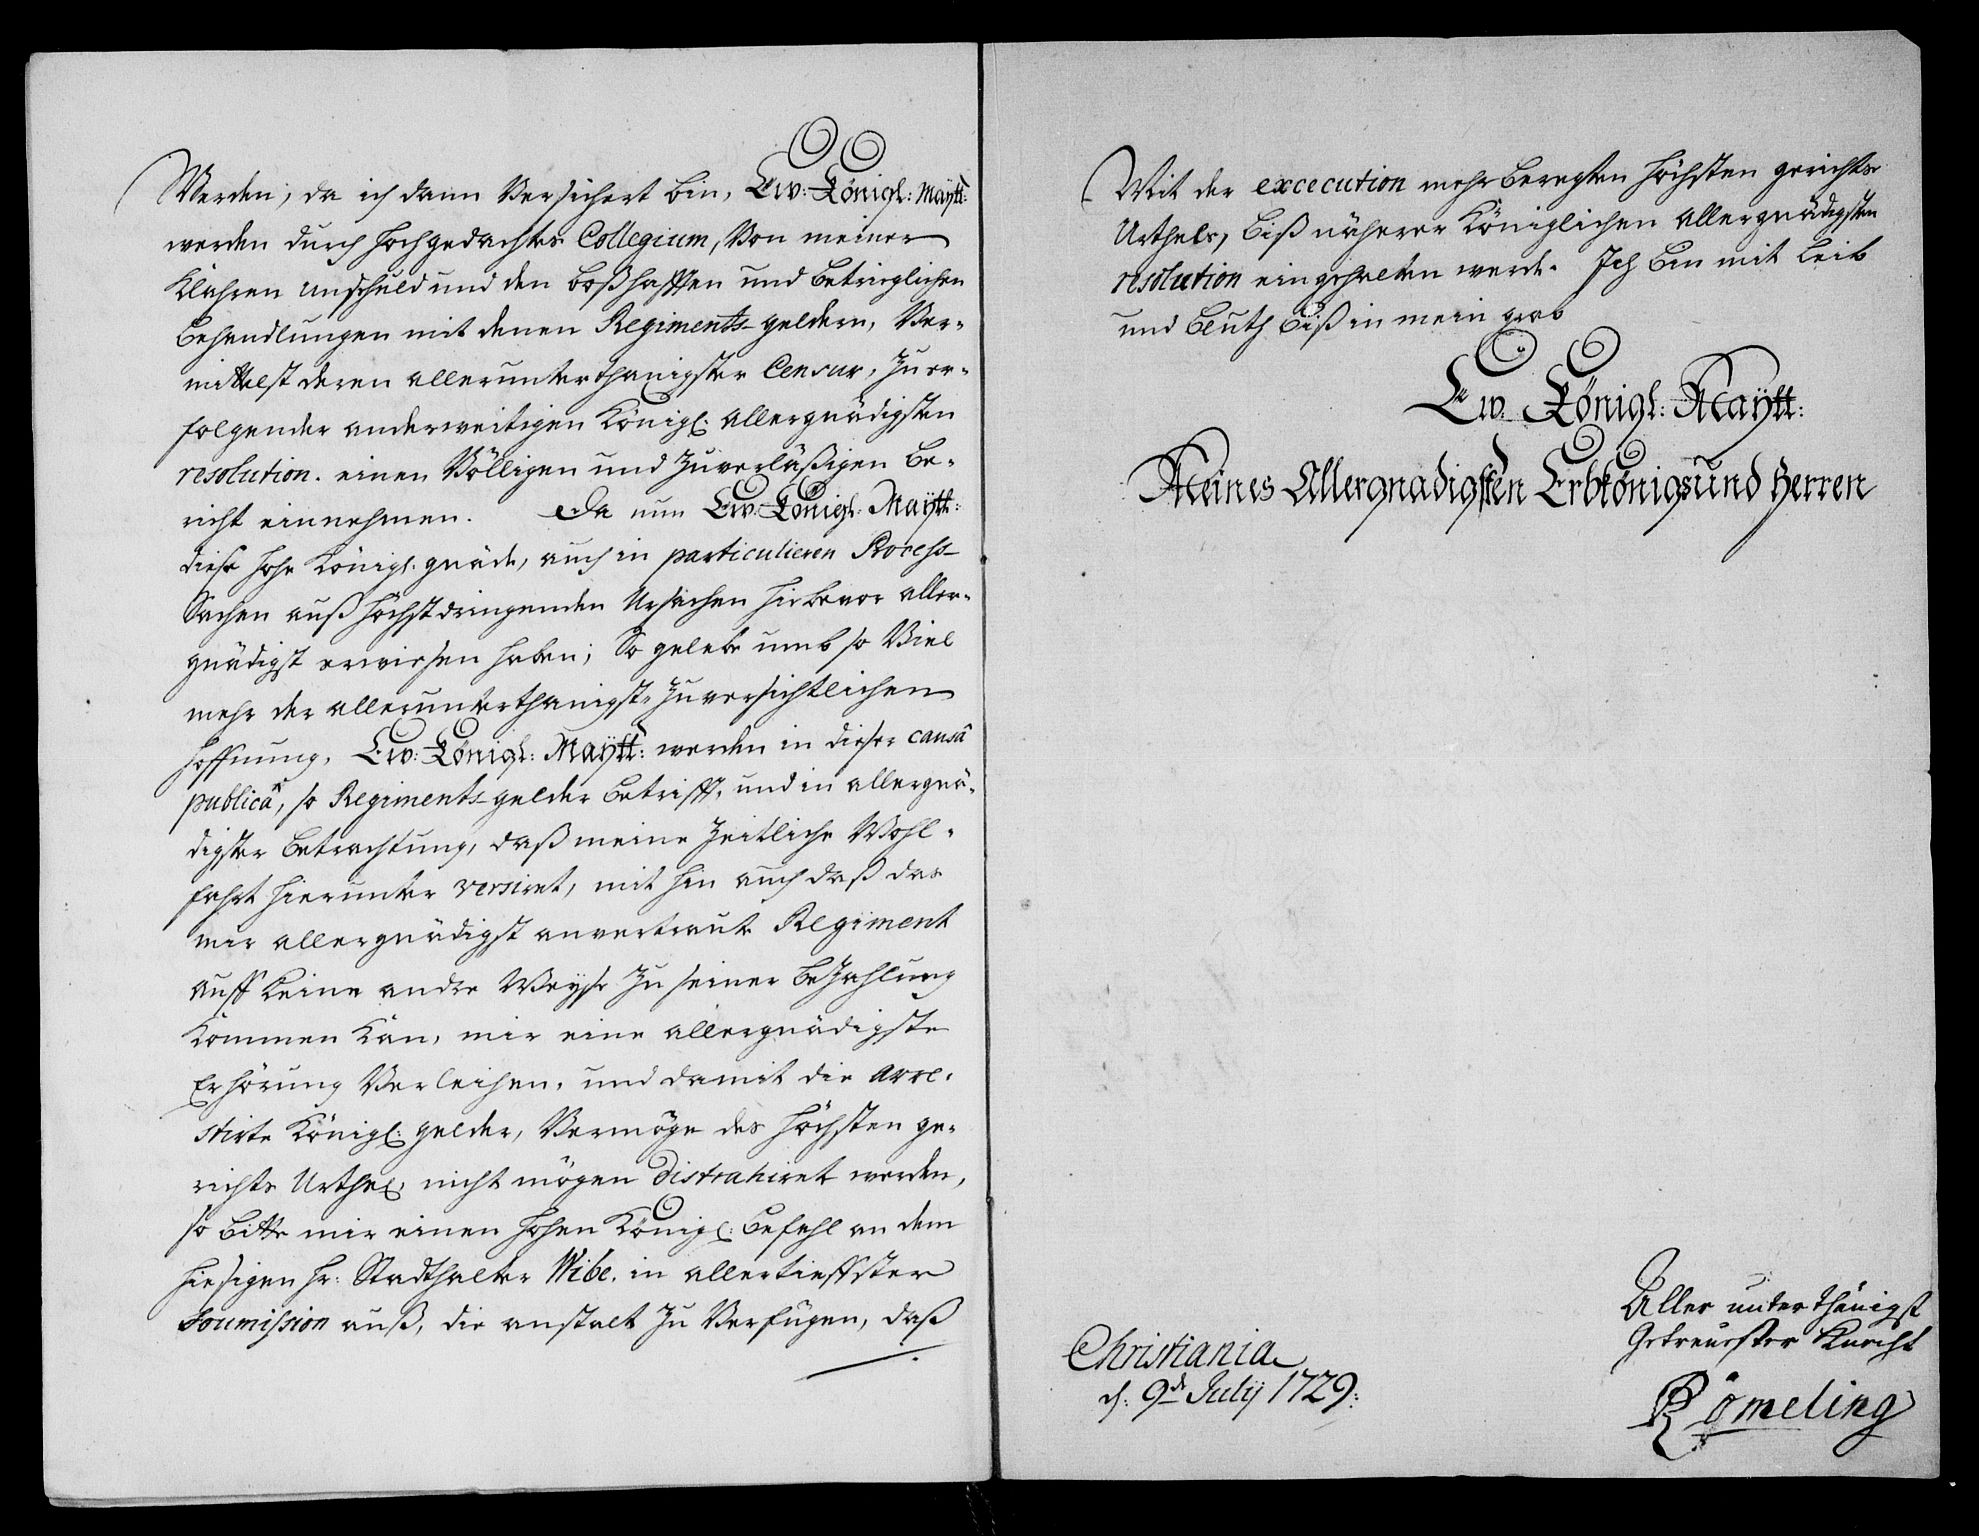 Werden, da ich dann Versichert bin, Ew: Königl: Maytt:
werden durch hochgedachtes Collegium, Von meiner
Klahren unschuld und den boßhafften und betrieglichen
behandlungen mit denen Regiments-geldern, Ver-
mittelst deren allerunterthanigster Censur, zu er-
folgender anderweitigen Königl. allergnädigsten
resolution. einen Völligen und zuverläßigen be-
richt einnehmen. Da nun Ew: Königl: Maytt:
diese hohe Königl. gnade, auch in particulieren Process-
Sachen auß höchst dringenden Ursachen hiebevor aller-
gnädigst erwiesen haben; So gelebe umb so Viel
mehr der allerunterthanigst-zuversichtlichen
hoffnung, Ew: Königl: Maytt: werden in dieser causâ
publicâ, so Regiments-gelder betrifft, und in allergnä-
digster betrachtung, daß meine zeitliche Wohl-
fahrt hierunter versiret, mit hin auch daß das
mir allergnädigst anvertraute Regiment
auff keine andre Weyse zu seiner bezahlung
kommen kan, mir eine allergnädigste
Erhörung Verleihen, und damit die arre-
stirte Königl: gelder, Vermöge des höchsten ge-
richts Urthel, nicht mögen distrahiret werden,
so bitte mir einen hohen Königl: befehl an dem
hiesigen hr: Stadthalter Wibe. in allertieffster
Soumission auß, die anstalt zu Verfügen, daß
Mit der excecution mehr beregten höchsten gerichts
Urthels, biß näherer Königlichen allergnädigsten
resolution eingehalten werde. Ich bin mit leib
und bluth biß in mein grab
Ew. Königl: Maytt:
Meines Allergnadigsten Erbkönigs und Herren
Aller unterthänigst
Getreuester Knecht
Römeling
Christiania
d: 9de Julij 1729: